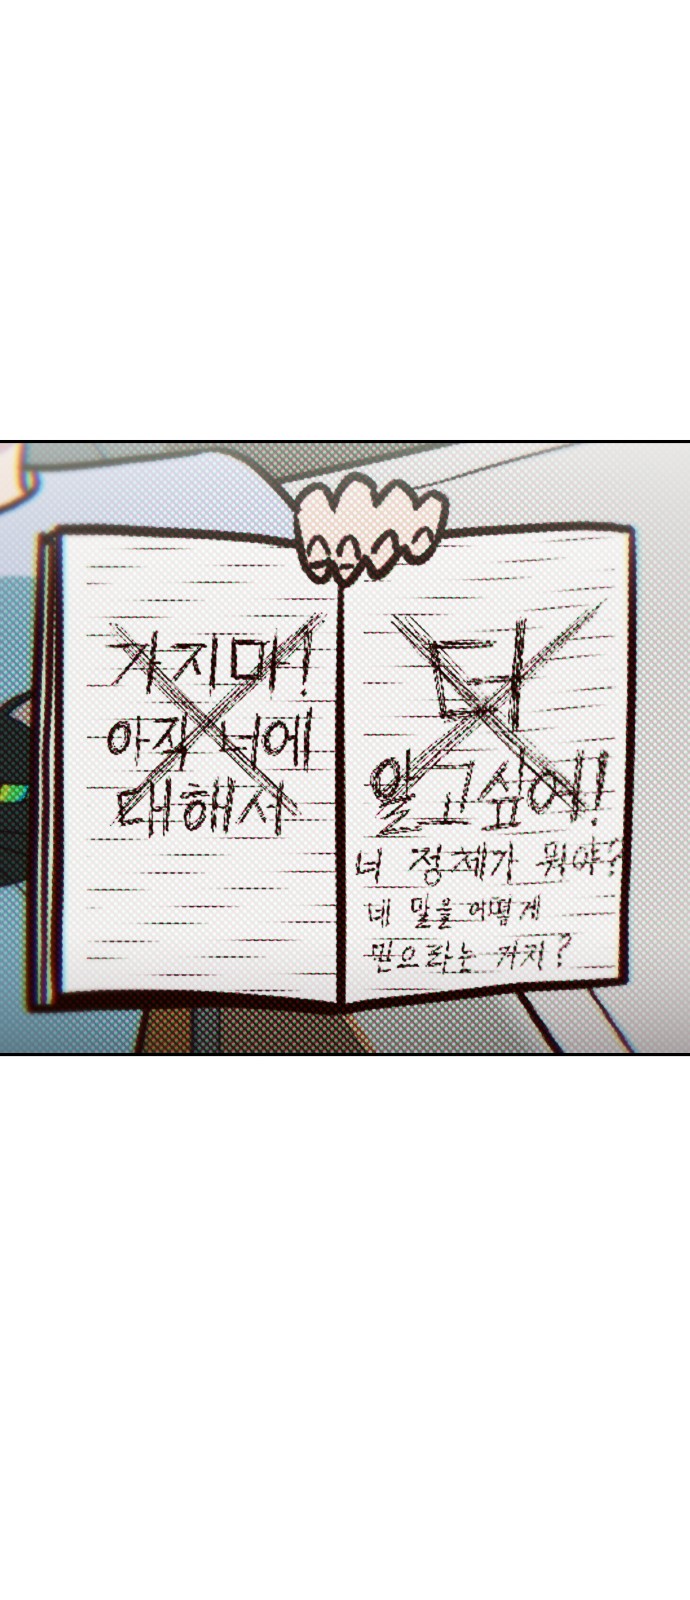 가지마!
아직 너에
대해서
더
알고싶어!
너 정체가 뭐야?
네 말을 어떻게
믿으라는 거지?